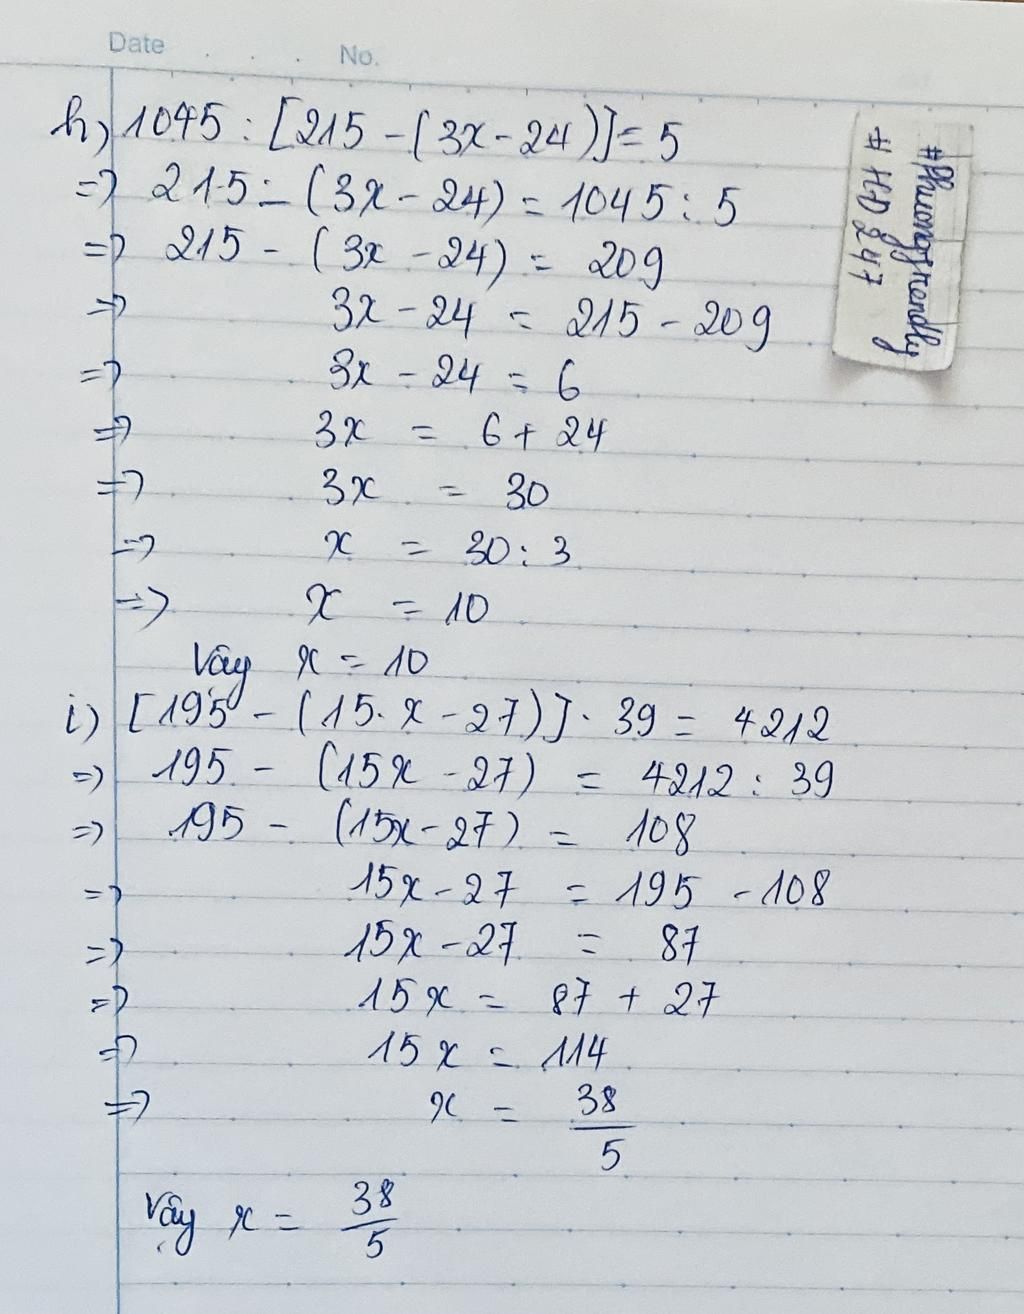 Date . . . No.
h) 1045 : [215 - (3x - 24)] = 5
=> 215 - (3x - 24) = 1045 : 5
=> 215 - (3x - 24) = 209
=> 3x - 24 = 215 - 209
=> 3x - 24 = 6
=> 3x = 6 + 24
=> 3x = 30
=> x = 30 : 3
=> x = 10
Vây x = 10
i) [195 - (15. x - 27)] . 39 = 4212
=> 195 - (15x - 27) = 4212 : 39
=> 195 - (15x - 27) = 108
=> 15x - 27 = 195 - 108
=> 15x - 27 = 87
=> 15x = 87 + 27
=> 15x = 114
=> x = 38/5
Vây x = 38/5
#Phuongtrendly
# HD 247